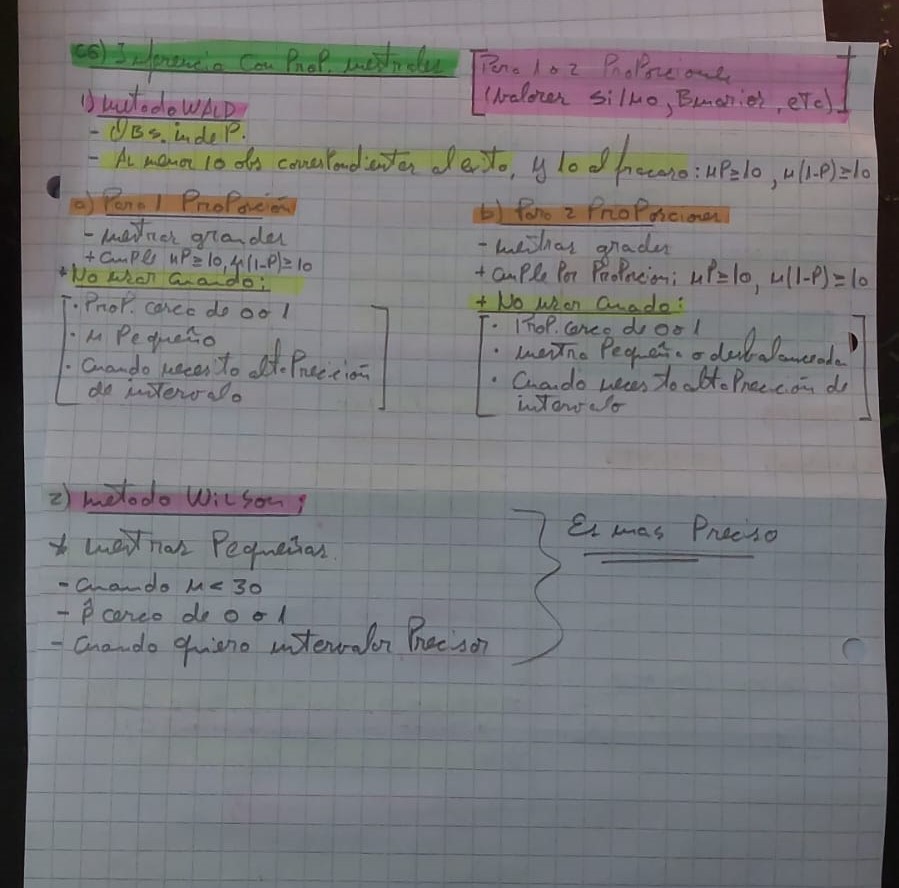 C6) Inferencia con Prop. mestrales
[Para 1 o 2 Proporciones
(valores si/no, Binarios, etc)]
1) metodo WALD
- OBs. indeP.
- Al menos 10 obs correspondientes al exito, y 10 al fracaso: nP≥10, n(1-P)≥10
a) Para 1 Proporción
- mestras grandes
+ cumple nP≥10, n(1-P)≥10
+ No usar cuando:
· Prop. cerca de 0 o 1
· n Pequeño
· Cuando necesito alta Precición
de intervalo
b) Para 2 Proporciones
- mestras grades
+ cumple Por Proporcion; nP≥10, n(1-P)≥10
+ No usar cuado:
· Prop. cerca de 0 o 1
· mestra Pequeña o desbalanceada
· Cuando necesito alta Precición de
intervalo
2) metodo Wilson;
* mestras Pequeñas.
- cuando n < 30
- p̂ cerca de 0 o 1
- cuando quiero intervalos Precisos
Es mas Preciso